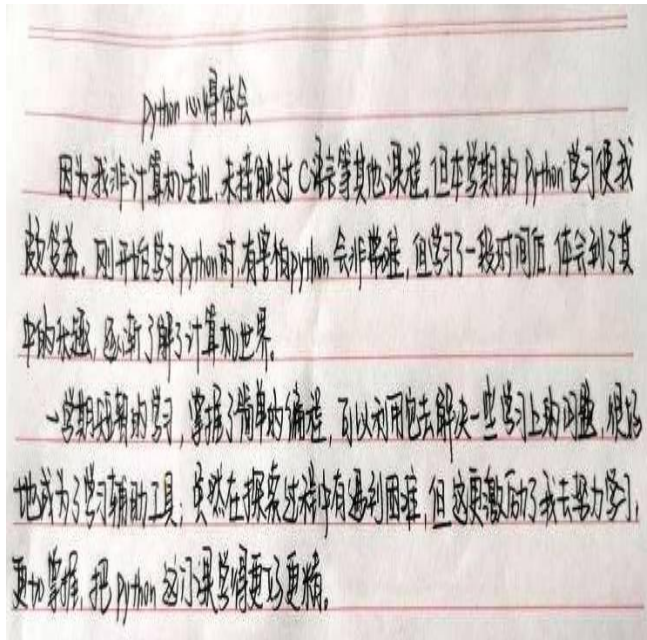 python 心得体会
因为我非计算机专业,未接触过C语言等其他课程,但本学期的Python学习使我
收益。刚开始学习python时,有害怕python会非常难,但学习了一段时间后,体会到了其
中的乐趣,逐渐了解了计算机世界。
一学期短暂的学习,掌握了简单的编程,可以利用它去解决一些学习上的问题,很好
地成为了学习辅助工具;虽然在探索过程中有遇到困难,但这更激励了我去努力学习,
更加掌握,把python这门课学得更巧更精。